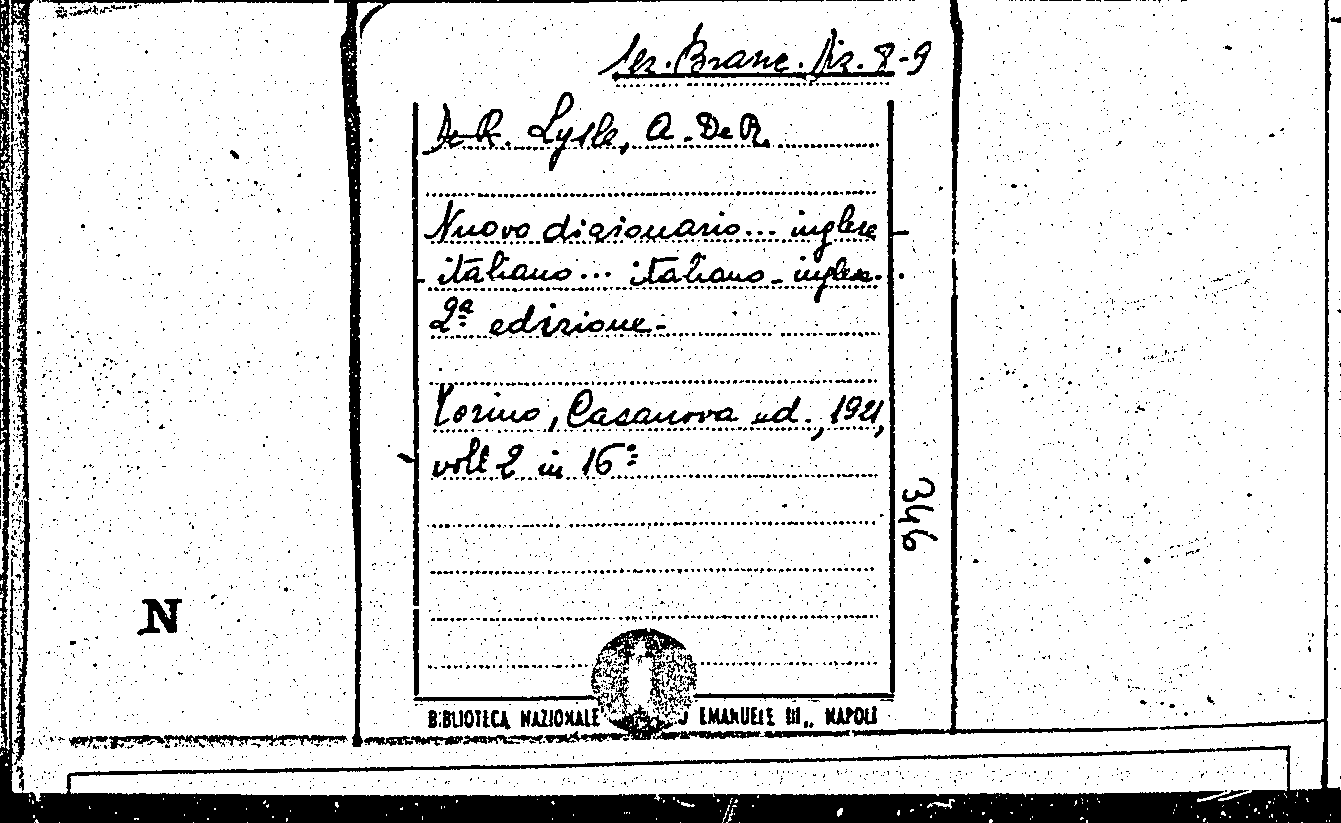 Sez. Branc. Diz. 8-9
De R. Lysle, A. De R.
Nuovo dizionario... inglese -
- italiano... italiano - inglese.
2ª edizione -
Torino, Casanova ed., 1921,
voll 2 in 16°
346
N
BIBLIOTECA NAZIONALE EMANUELE III,, NAPOLI